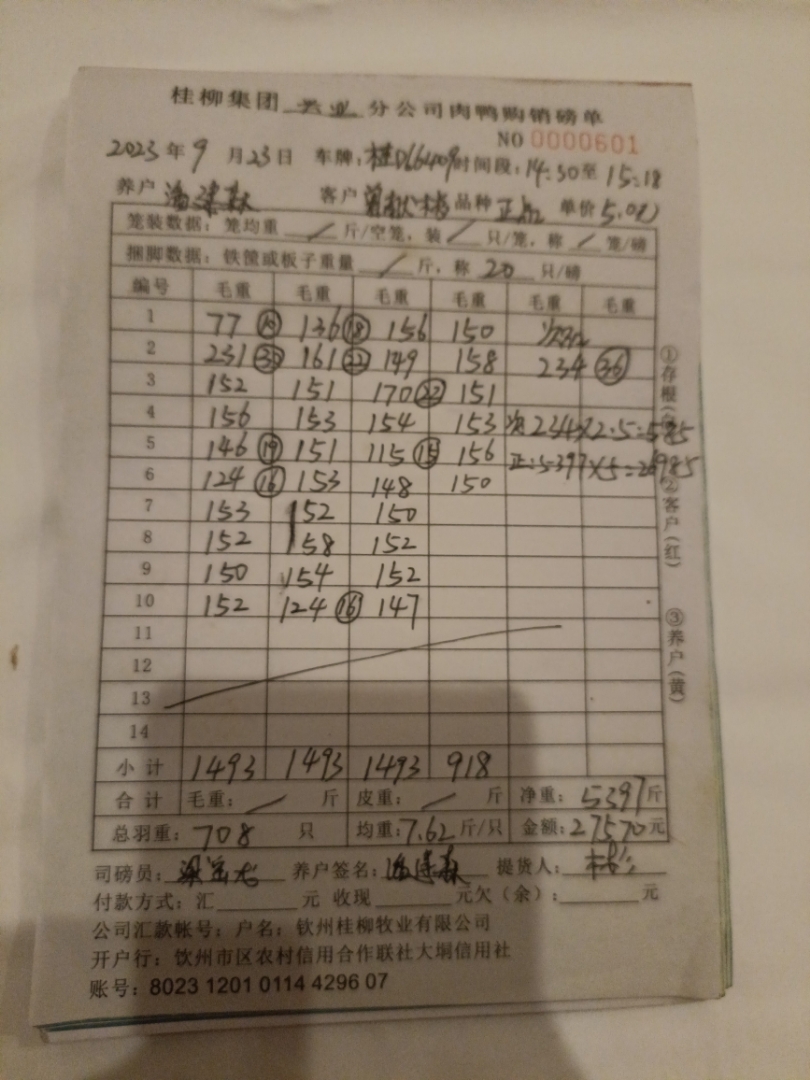 桂柳集团 兴业 分公司肉鸭购销磅单
NO 0000601
2023 年 9 月 23 日 车牌：桂D66409 时间段：14:30 至 15:18
养户 客户 品种 单价 5.00
笼装数据：笼均重 / 斤/空笼，装 / 只/笼，称 / 笼/磅
捆脚数据：铁筐或板子重量 / 斤，称 20 只/磅
编号 毛重 毛重 毛重 毛重 毛重 毛重
1 77 136 ⑱ 156 150
2 231 161 ㉒ 149 158 234 ㊱
3 152 151 170 ㉒ 151
4 156 153 154 153 次234×2.5=585
5 146 ⑲ 151 115 ⑮ 156 正:5397×5=26985
6 124 ⑯ 153 148 150
7 153 152 150
8 152 158 152
9 150 154 152
10 152 124 ⑯ 147
11
12
13
14
小计 1493 1493 1493 918
合计 毛重：/ 斤 皮重：/ 斤 净重：5397斤
总羽重：708 只 均重：7.62斤/只 金额：27570元
司磅员： 养户签名： 提货人：
付款方式：汇 元 收现 元欠（余）： 元
公司汇款帐号：户名：钦州桂柳牧业有限公司
开户行：饮州市区农村信用合作联社大垌信用社
账号：8023 1201 0114 4296 07
①存根
②客户(红)
③养户(黄)